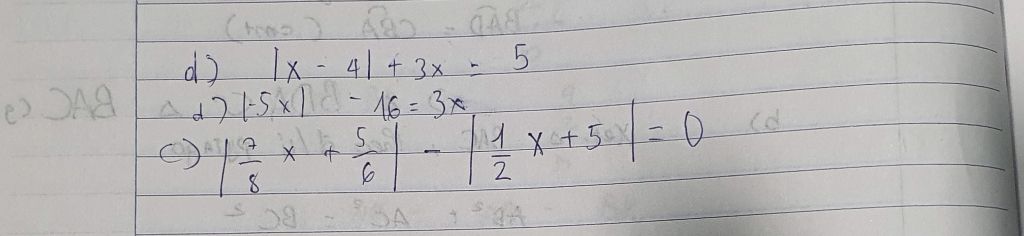 d) |x - 4| + 3x = 5
d) |-5x| - 16 = 3x
c) |7/8 x + 5/6| - |1/2 x + 5| = 0